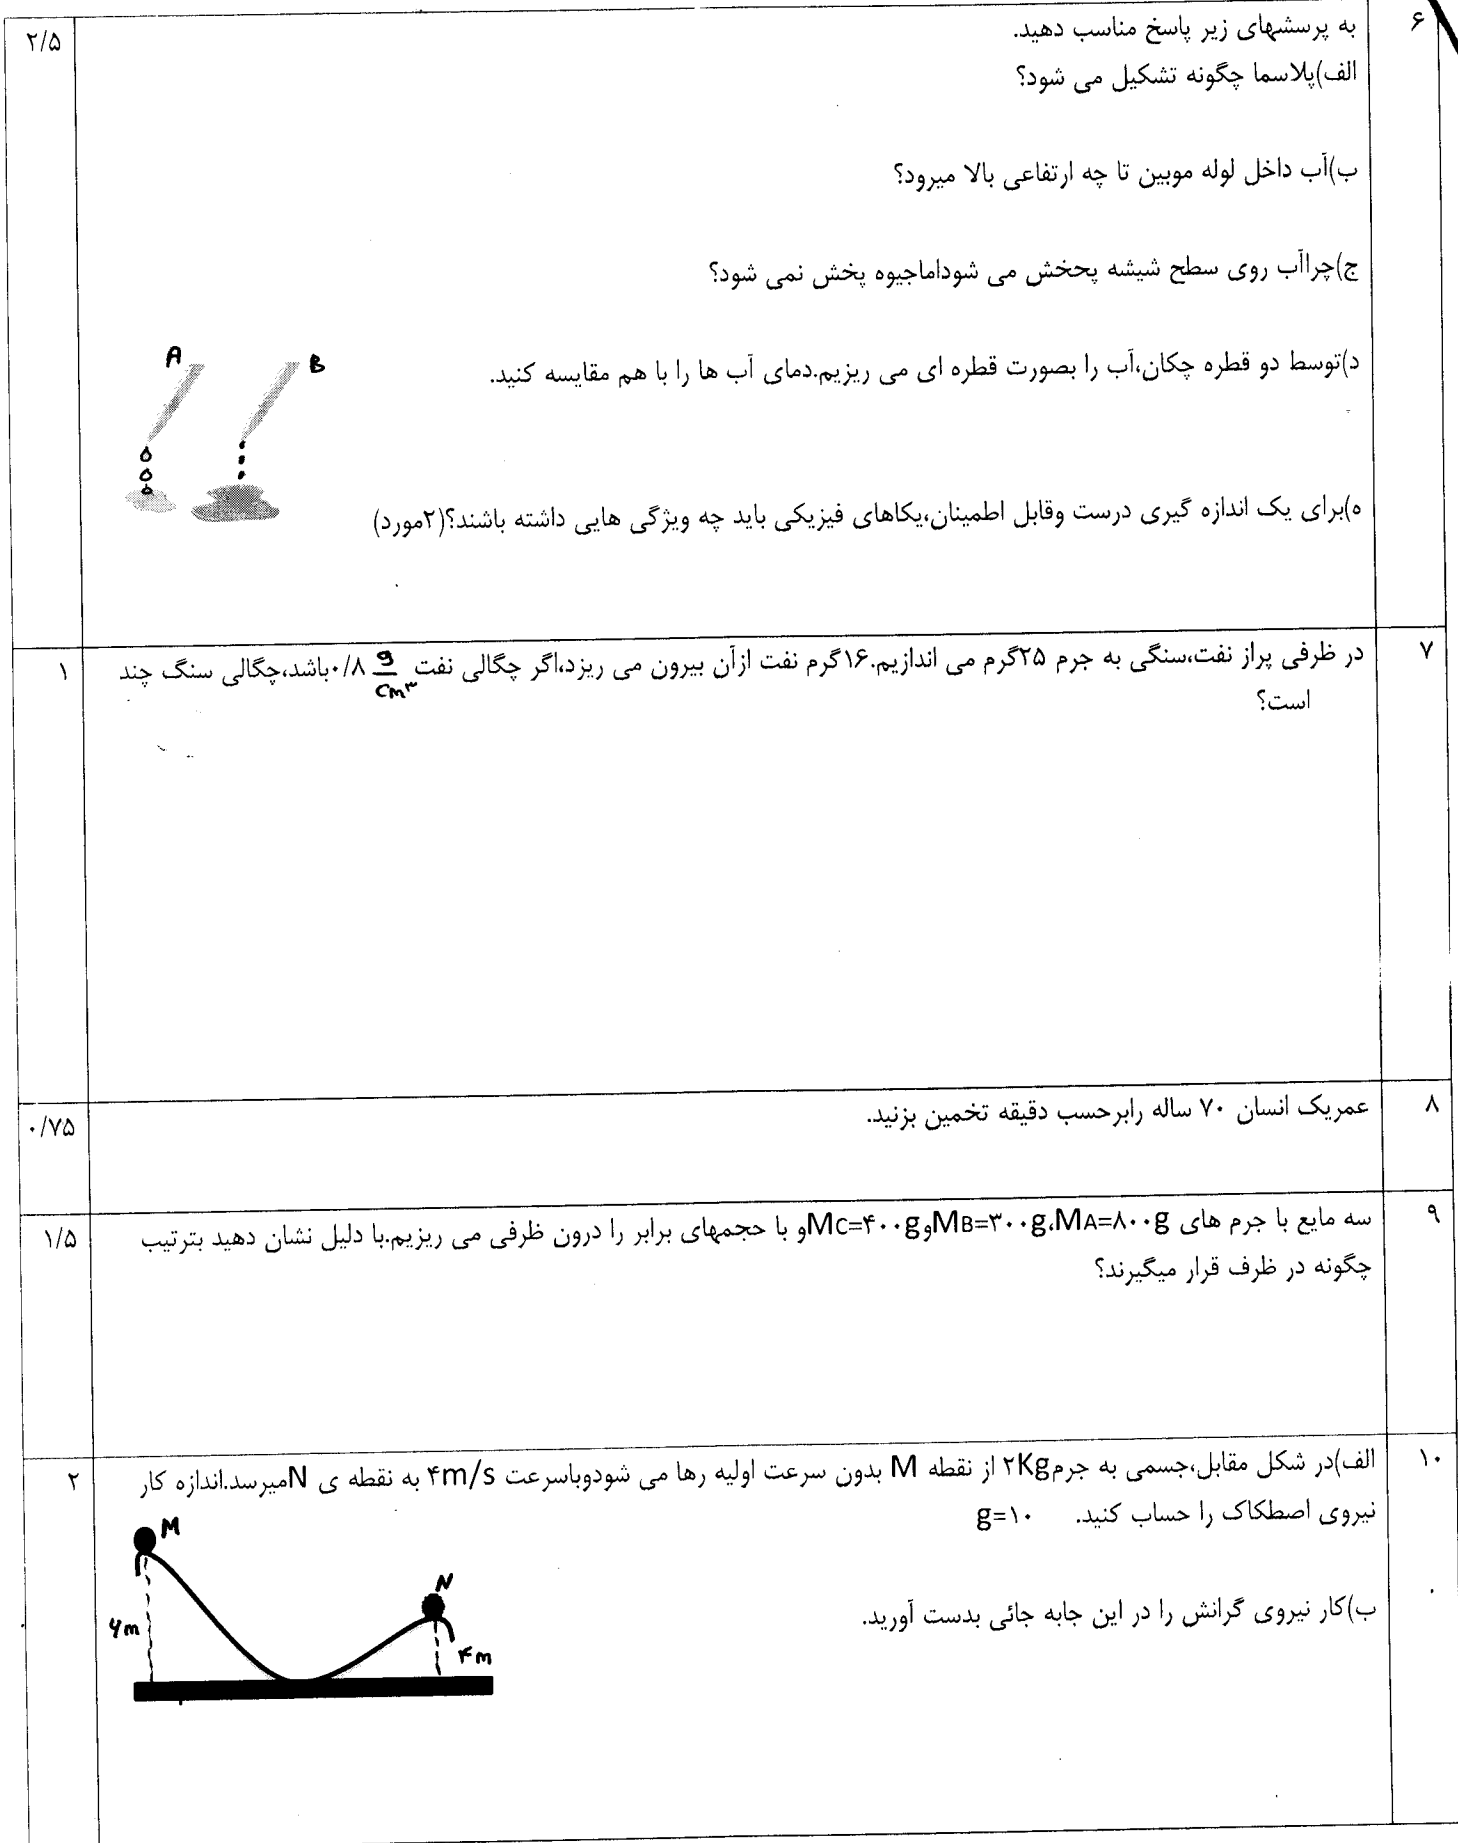 ۶
به پرسشهای زیر پاسخ مناسب دهید.
۲/۵
الف)پلاسما چگونه تشکیل می شود؟
ب)آب داخل لوله مویین تا چه ارتفاعی بالا میرود؟
ج)چراآب روی سطح شیشه پخخش می شوداماجیوه پخش نمی شود؟
د)توسط دو قطره چکان،آب را بصورت قطره ای می ریزیم.دمای آب ها را با هم مقایسه کنید.
A B
ه)برای یک اندازه گیری درست وقابل اطمینان،یکاهای فیزیکی باید چه ویژگی هایی داشته باشند؟(۲مورد)
۷
در ظرفی پراز نفت،سنگی به جرم ۲۵گرم می اندازیم.۱۶گرم نفت ازآن بیرون می ریزد،اگر چگالی نفت g/cm۳ ۰/۸باشد،چگالی سنگ چند
۱
است؟
۸
عمریک انسان ۷۰ ساله رابرحسب دقیقه تخمین بزنید.
۰/۷۵
۹
سه مایع با جرم های MA=۸۰۰g،MB=۳۰۰gوMC=۴۰۰gو با حجمهای برابر را درون ظرفی می ریزیم.با دلیل نشان دهید بترتیب
۱/۵
چگونه در ظرف قرار میگیرند؟
۱۰
الف)در شکل مقابل،جسمی به جرم۲Kg از نقطه M بدون سرعت اولیه رها می شودوباسرعت ۴m/s به نقطه ی Nمیرسد.اندازه کار
۲
نیروی اصطکاک را حساب کنید. g=۱۰
M
N
ب)کار نیروی گرانش را در این جابه جائی بدست آورید.
۶m
۴m